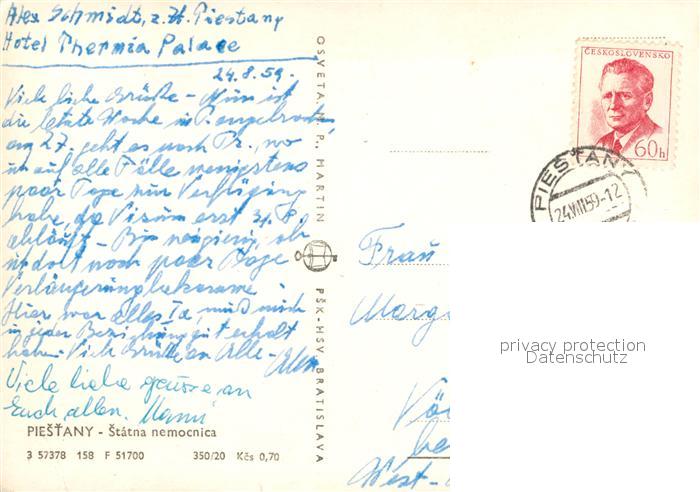 Alex Schmidt, z. Zt. Piestany
Hotel Thermia Palace
24.8.59.
Viele liebe Grüße - Nun ist
die letzte Woche in P. angebrochen,
am 27. geht es nach Pr., wo
ich auf alle Fälle wenigstens
paar Tage zur Verfügung
habe, da Visum erst 31.8.
abläuft - Bin neugierig, ob
ich dort noch paar Tage
Verlängerung bekomme
Hier war alles Ia, muß mich
in jeder Beziehung gut erholt
haben - Viele Grüße an Alle - Alex
Viele liebe grüsse an
Euch allen. Mami
PIEŠŤANY - Štátna nemocnica
3 57378 158 F 51700 350/20 Kčs 0,70
OSVETA, N. P., MARTIN
PŠK-HSV BRATISLAVA
ČESKOSLOVENSKO
60h
PIEŠŤANY
24.VIII.59-12
Frau
Marg
privacy protection
Datenschutz
West-